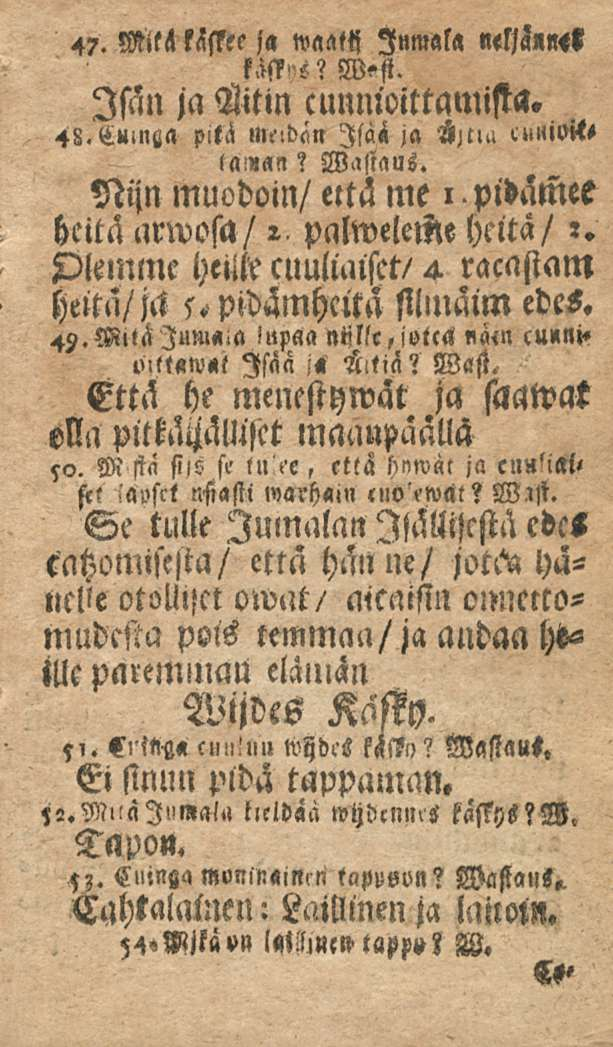 47. Mitä käskee ja waatii Jumala neljännes
käskys? Wast.
Isän ja Äitin cunnioittamista.
48. Cuinga pitä meidän Isää ja Äitiä cunnioit-
taman? Wastaus.
Nijn muodoin/ että me 1. pidäm̄ee
heitä arwosa/ 2. palwelem̄e heitä/ 3.
Olemme heille cuuliaiset/ 4 racastam
heitä/ ja 5. pidämheitä silmäim edes.
49. Mitä Jumala lupaa niille, jotca näin cunni-
oittawat Isää ja Äitiä? Wast.
Että he menestywät ja saawat
olla pitkäijälliset maanpäällä
50. Mistä sijs se tulee, että hywät ja cuuliai-
set lapset usiasti warhain cuolewat? Wast.
Se tulle Jumalan Isällisestä edes
catzomisesta/ että hän ne/ jotca hä-
nelle otolliset owat/ aicaisin onnetto-
mudesta pois temmaa/ ja andaa he-
ille paremman elämän
Wijdes Käsky.
51. Cuinga cuuluu wijdes käsky? Wastaus.
Ei sinun pidä tappaman.
52. Mitä Jumala kieldää wijdennes käskys? W.
Tapon.
53. Cuinga moninainen tappoon? Wastaus.
Cahtalainen: Laillinen ja laitoin.
54. Mikä on laillinen tappo? W.
Co-